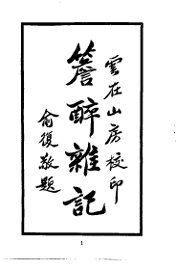 雲在山房校印
簷醉雜記
俞復敬題
1